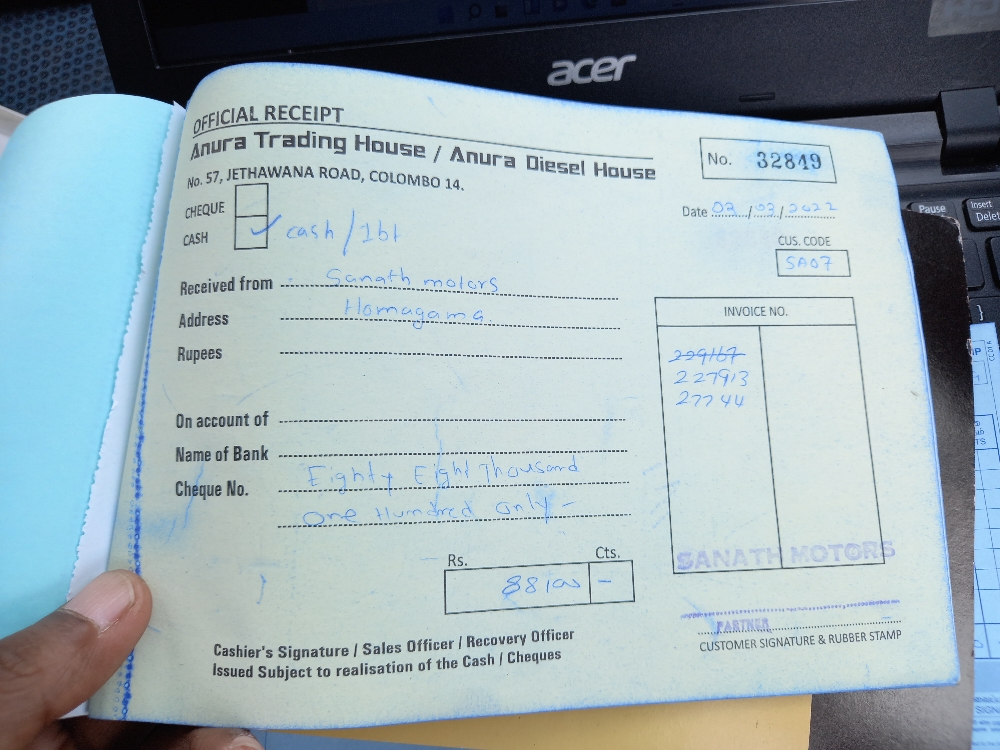 acer
OFFICIAL RECEIPT
Anura Trading House / Anura Diesel House
No. 57, JETHAWANA ROAD, COLOMBO 14.
No. 32849
Date 03/03/2022
CHEQUE
CASH ✓ cash/Ibt
CUS. CODE
SA07
Received from Sanath motors
Address Homagama.
Rupees
INVOICE NO.
229167
227913
27744
On account of
Name of Bank
Cheque No. Eighty Eight Thousand
One Hundred Only -
Rs. Cts.
88100 -
SANATH MOTORS
PARTNER
CUSTOMER SIGNATURE & RUBBER STAMP
Cashier's Signature / Sales Officer / Recovery Officer
Issued Subject to realisation of the Cash / Cheques
Pause
Insert